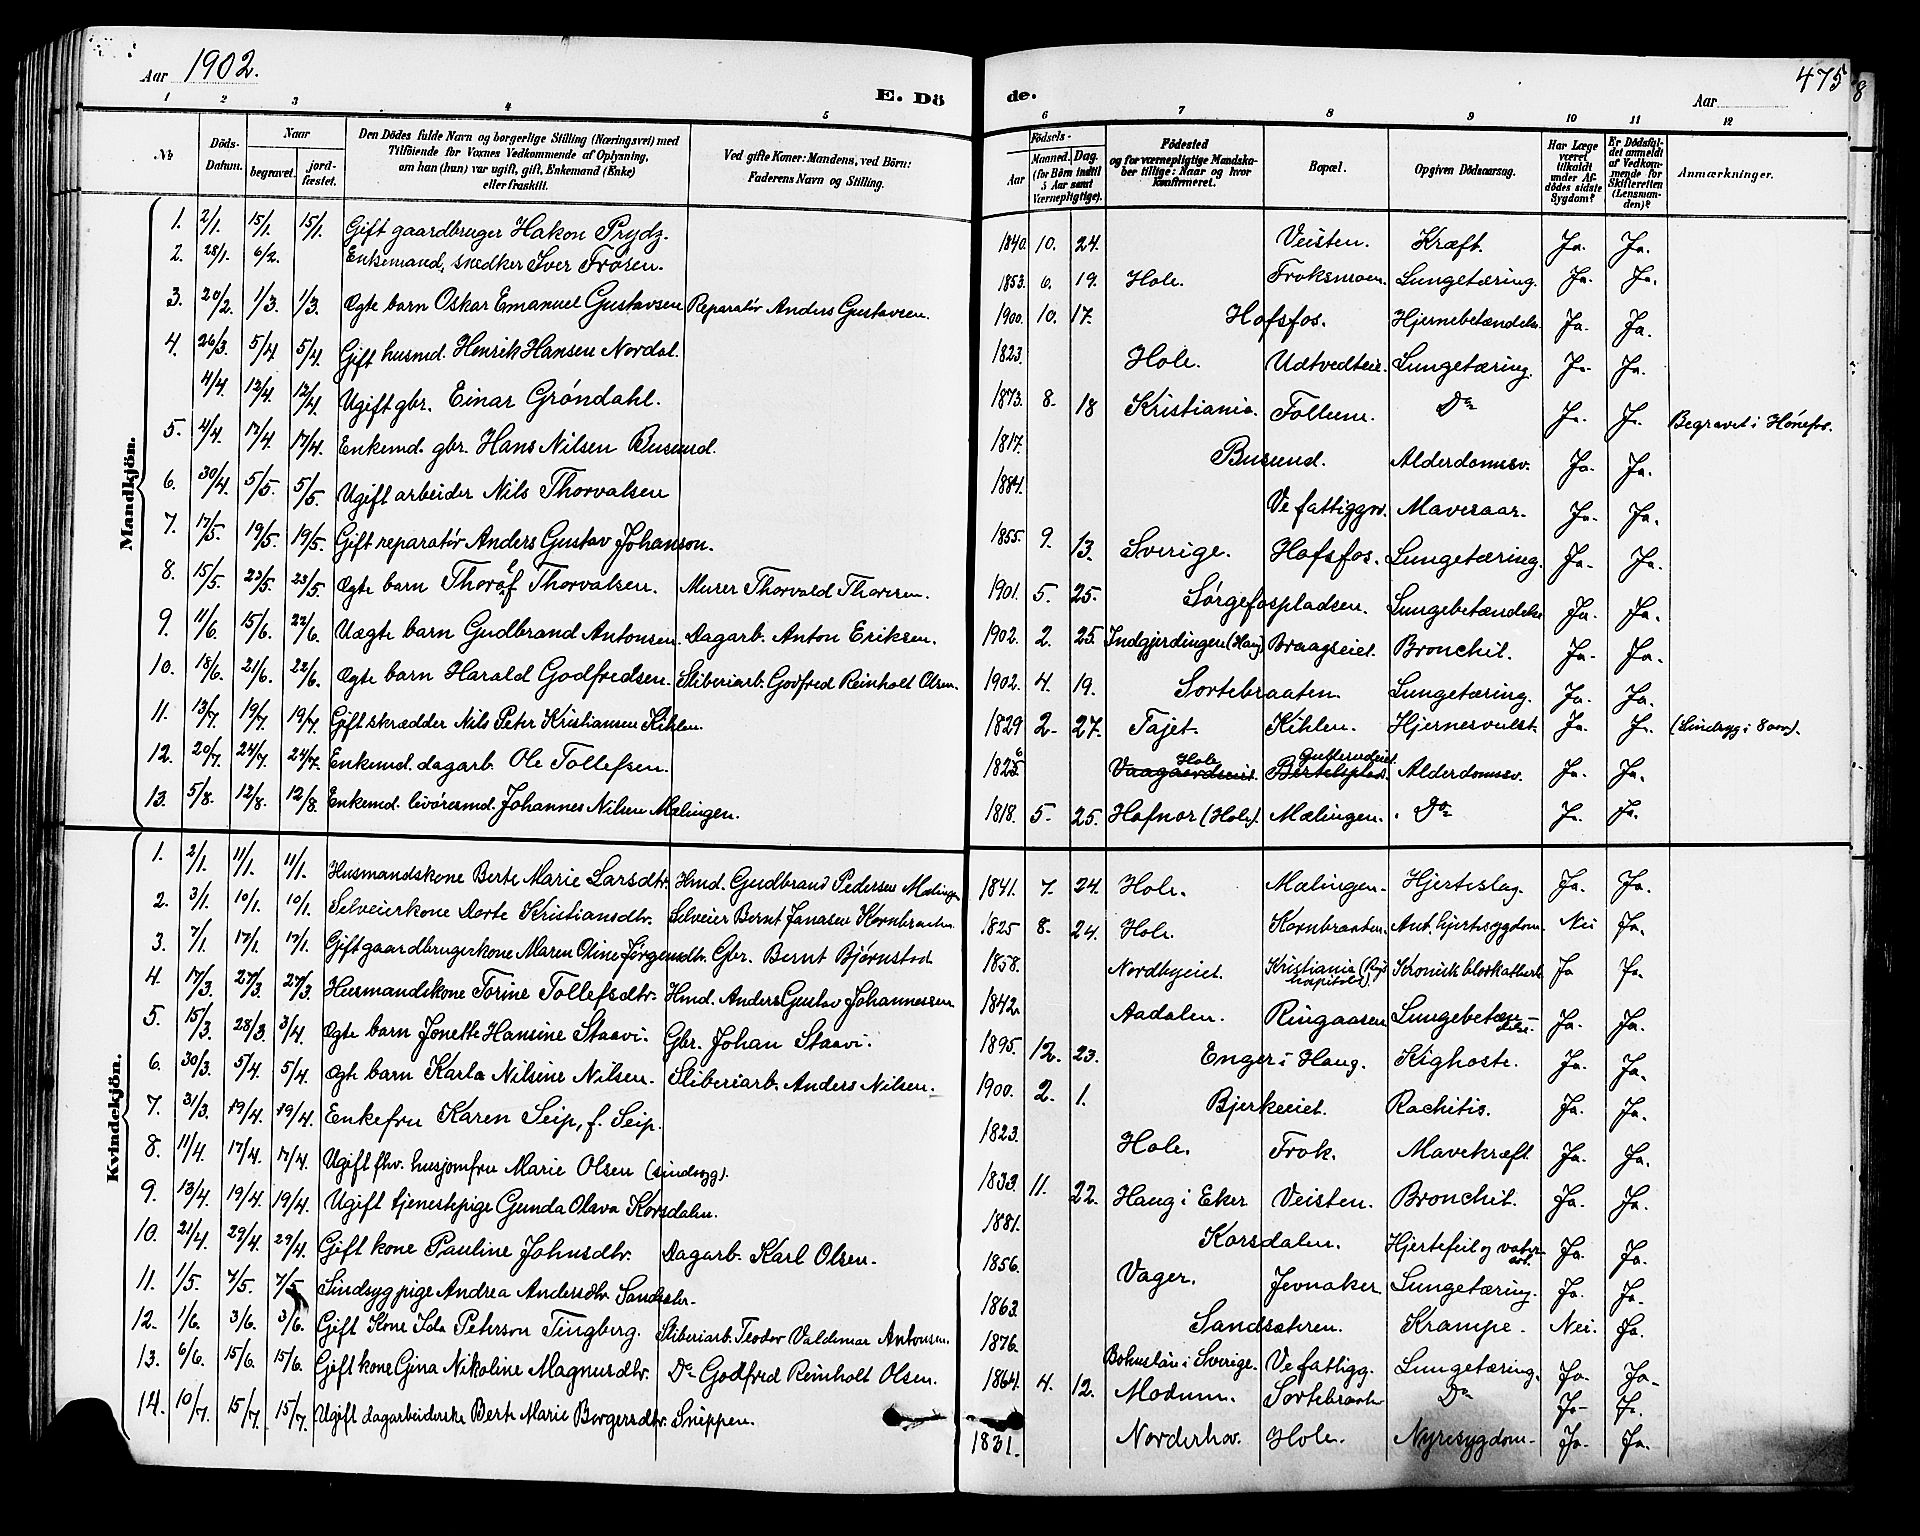 Aar 1902.
E. Döde.
Aar
475
1 2 3 4 5 6 7 8 9 10 11 12
No
Döds-Datum.
Naar
begravet.
jord-fæstet.
Den Dödes fulde Navn og borgerlige Stilling (Næringsvei) med
Tilföiende for Voxnes Vedkommende af Oplysning,
om han (hun) var ugift, gift, Enkemand (Enke)
eller fraskilt.
Ved gifte Koner: Mandens, ved Börn:
Faderens Navn og Stilling.
Födsels-
Aar
Maaned. Dag.
(for Börn indtil 5 Aar samt Værnepligtige).
Födested
og for værnepligtige Mandska-
ber tillige: Naar og hvor
konfirmeret.
Bopæl.
Opgiven Dödsaarsag.
Har Læge været tilkaldt under Af-dödes sidste Sygdom?
Er Dödsfal-det anmeldt af Vedkom-mende for Skifteretten (Lensman-den)?
Anmærkninger.
Mandkjön.
1. 2/1. 15/1. 15/1. Gift gaardbruger Hakon Prydz. 1840. 10. 24. Veisten. Kræft. Ja. Ja.
2. 28/1. 6/2. Enkemand, snedker Iver Frøsen. 1853. 6. 19. Hole. Froksmoen. Lungetæring. Ja. Ja.
3. 20/2. 1/3. 1/3. Ægte barn Oskar Emanuel Gustavsen Reparatør Anders Gustavsen. 1900. 10. 17. Hofsfos. Hjernebetændelse Ja. Ja.
4. 26/3. 5/4 5/4. Gift husmd. Henrik Hansen Nordal. 1823. Hole. Udtvedteie. Lungetæring. Ja. Ja.
4/4. 12/4. 12/4. Ugift gbr. Einar Gröndahl. 1873. 8. 18 Kristiania. Follum. Do Ja. Ja. Begravet i Hønefos.
5. 4/4. 17/4. 17/4. Enkemd. gbr. Hans Nilsen Busund. 1817. Busund. Alderdomssv. Ja. Ja.
6. 30/4. 5/5. 5/5. Ugift arbeider Nils Thorvalsen 1884. Ve fattiggrd. Mavesaar. Ja. Ja.
7. 17/5. 19/5. 19/5. Gift reparatör Anders Gustav Johanson. 1855. 9. 13. Sverige. Hofsfos. Lungetæring. Ja. Ja.
8. 15/5. 23/5. 23/5. Ægte barn Thorolf Thorvalsen. Murer Thorvald Thoresen. 1901. 5. 25. Sørgefospladsen. Lungebetændelse Ja. Ja.
9. 11/6. 15/6. 22/6. Uægte barn Gudbrand Antonsen. Dagarb. Anton Eriksen. 1902. 2. 25. Indgjerdingen (Haug) Braagseiet. Bronchit. Ja. Ja.
10. 18/6. 21/6. 22/6. Ægte barn Harald Godfredsen. Sliberiarb. Godfred Reinholt Olsen. 1902. 4. 19. Sortebraaten. Lungetæring. Ja. Ja.
11. 13/7. 19/7. 19/7. Gift skrædder Nils Peter Kristiansen Kihlen. 1829 2. 27. Tajet. Kihlen. Hjernesvulst. Ja. Ja. (Sindsyg i 8 aar).
12. 20/7. 24/7. 24/7. Enkemd. dagarb. Ole Tollefsen. 1825 Hole Alderdomssv. Ja. Ja.
13. 5/8. 12/8. 12/8. Enkemd. livøresmd. Johannes Nilsen Mælingen. 1818. 5. 25. Hofnor (Hole). Mælingen. Do Ja. Ja.
Kvindekjön.
1. 2/1. 11/1. 11/1. Husmandskone Berte Marie Larsdtr. Hmd. Gudbrand Pedersen Mælingen 1841. 7. 24. Hole. Mælingen. Hjerteslag. Ja. Ja.
2. 3/1. 10/1. 10/1. Selveierkone Dorte Kristiansdtr. Selveier Bernt Jonasen Kornbraaten 1825 8. 24. Hole. Kornbraaten. Ant. hjertesygdom. Nei Ja.
3. 7/1. 17/1. 17/1. Gift gaardbrugerkone Maren Oline Jørgensdtr. Gbr. Bernt Bjørnstad 1858. Nordbyeiet. Kristiania (Rigshospitalet). Kronisk blærkatharh Ja Ja.
4. 17/3. 27/3. 27/3. Husmandskone Torine Tollefsdtr. Hmd. Anders Gustav Johannessen 1842. Aadalen. Ringaasen Lungebetændelse. Ja. Ja.
5. 15/3. 28/3. 3/4. Ægte barn Jonette Hansine Staavi. Gbr. Johan Staavi. 1895. 12. 23. Enger i Haug. Kighoste. Ja. Ja.
6. 30/3. 5/4. 5/4. Ægte barn Karla Nilsine Nilsen. Sliberiarb. Anders Nilsen. 1900. 2. 1. Bjerkeeiet. Rachitis. Ja. Ja.
7. 31/3. 19/4. 19/4. Enkefru Karen Seip, f. Seip. 1823. Hole. Frok. Mavekræft. Ja. Ja.
8. 11/4. 17/4. 17/4. Ugift fhv. husjomfru Marie Olsen (sindsyg). 1833. 11. 22. Haug i Eker Veisten. Bronchit. Ja. Ja.
9. 13/4. 19/4. 19/4. Ugift tjenestepige Gunda Olava Korsdalen. 1881. Korsdalen. Hjertefeil og vatersot. Ja. Ja.
10. 21/4. 29/4. 29/4. Gift kone Pauline Johnsdtr. Dagarb. Karl Olsen. 1856. Vager. Jevnaker. Lungetæring. Ja. Ja.
11. 1/5. 7/5. 7/5. Sindsyg pige Andrea Andersdtr. Sandsæter. 1863. Sandsæteren. Krampe. Nei. Ja.
12. 1/6. 3/6. 3/6. Gift kone Ida Peterson Tingberg. Sliberiarb. Teodor Valdemar Antonsen 1876. Bohuslän i Sverige. Ve fattigg. Lungetæring. Ja. Ja.
13. 6/6. 15/6. 15/6. Gift kone Gina Nikoline Magnusdtr. Do Godfred Reinholt Olsen. 1864. 4. 12. Modum. Sortebraaten Do Ja. Ja.
14. 10/7. 15/7. 15/7. Ugift dagarbeiderske Berte Marie Borgersdtr. Snippen. 1831. Norderhov. Hole. Nyresygdom. Ja. Ja.